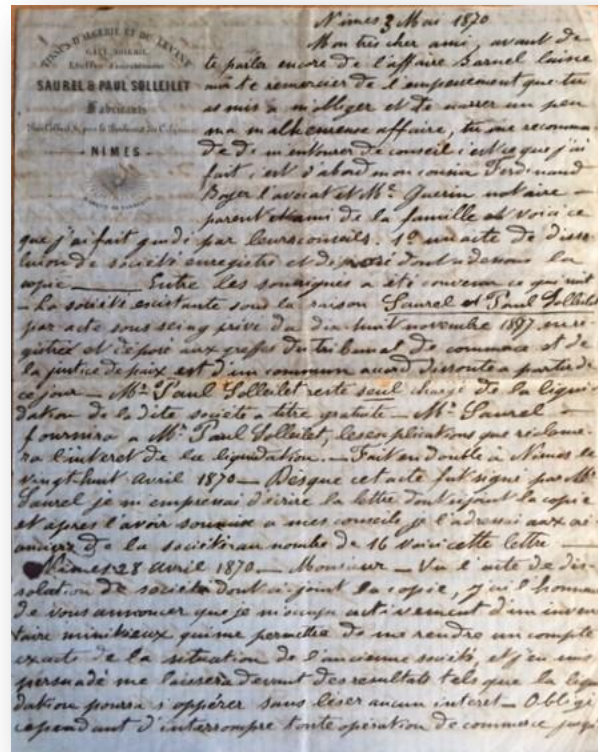 TISSUS D'ALGÉRIE ET DU LEVANT
GAZE, SOIERIE
SAUREL & PAUL SOLLEILET
Fabricants
NIMES
Nimes 3 Mai 1870
Mon très cher ami, avant de
te parler encore de l'affaire Barnel laisse
moi te remercier de l'empressement que tu
as mis a m'obliger et te narrer un peu
ma malheureuse affaire, tu me recomman
de de m'entourer de conseil c'est ce que j'ai
fait, c'est d'abord mon cousin Ferdinand
Boyer l'avocat et Mr. Guerin notaire –
parent et ami de la famille et voici ce
que j'ai fait guidé par leurs conseils. 1º un acte de disso
lution de société enregistré et déposé dont ci dessous la
copie — Entre les soussignés a été convenu ce qui suit
– La société existante sous la raison Saurel et Paul Solleilet
par acte sous seing privé du dix huit novembre 1867 enre
gistrée et déposé aux greffes du tribunal de commerce et de
la justice de paix est d'un commun accord dissoute a partir de
ce jour – Mr. Paul Solleilet reste seul chargé de la liqui-
dation de la dite société a titre gratuit – Mr. Saurel –
fournira a Mr. Paul Solleilet, les explications que réclame-
ra l'interet de la liquidation. – Fait en double à Nimes le
vingt huit avril 1870 – Dèsque cet acte fut signé par Mr.
Saurel je m'empressai d'écrire la lettre dont ci joint la copie
et après l'avoir soumise a mes conseils je l'adressai aux cré
anciers de la société au nombre de 16 voici cette lettre –
Nimes 28 avril 1870 – Monsieur – Vu l'acte de dis-
solution de société dont ci joint la copie, j'ai l'honneur
de vous annoncer que je m'occupe activement d'un inven
taire minutieux qui me permettra de me rendre un compte
exact de la situation de l'ancienne société, et j'en suis
persuadé me laissera devant des resultats tels que la liqui
dation pourra s'opérer sans léser aucun interet – Obligé
cependant d'interrompre toute opération de commerce jusqu'